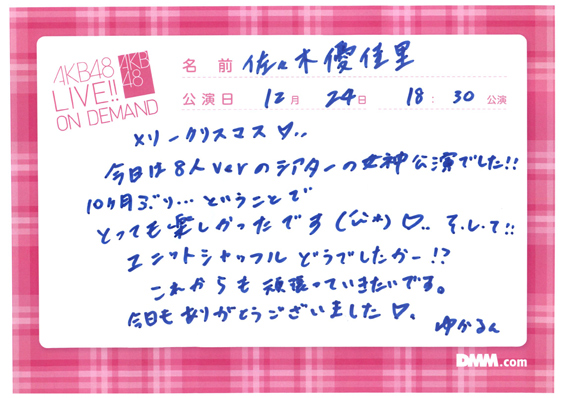 AKB48
LIVE!!
ON DEMAND
AKB
48
名前 佐々木優佳里
公演日 12月 24日 18:30公演
メリークリスマス♡..
今日は8人verのシアターの女神公演でした!!
10ヶ月ぶり…ということで
とっても楽しかったです(´ω`*)♡.. そ.し.て!!
ユニットシャッフル どうでしたかー!?
これからも 頑張っていきたいです。
今日も ありがとうございました♡.
ゆかるん
DMM.com